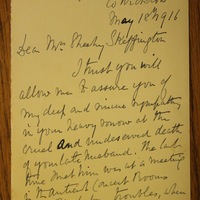 Co Wicklow
May 18th 1916
Dear Mrs Sheehy Skeffington
I trust you will
allow me to assure you of
my deep and sincere sympathy
in your heavy sorrow at the
cruel and undeserved death
of your late husband. The last
time I met him was at a meeting
in the Antient Concert Rooms
troubles, when